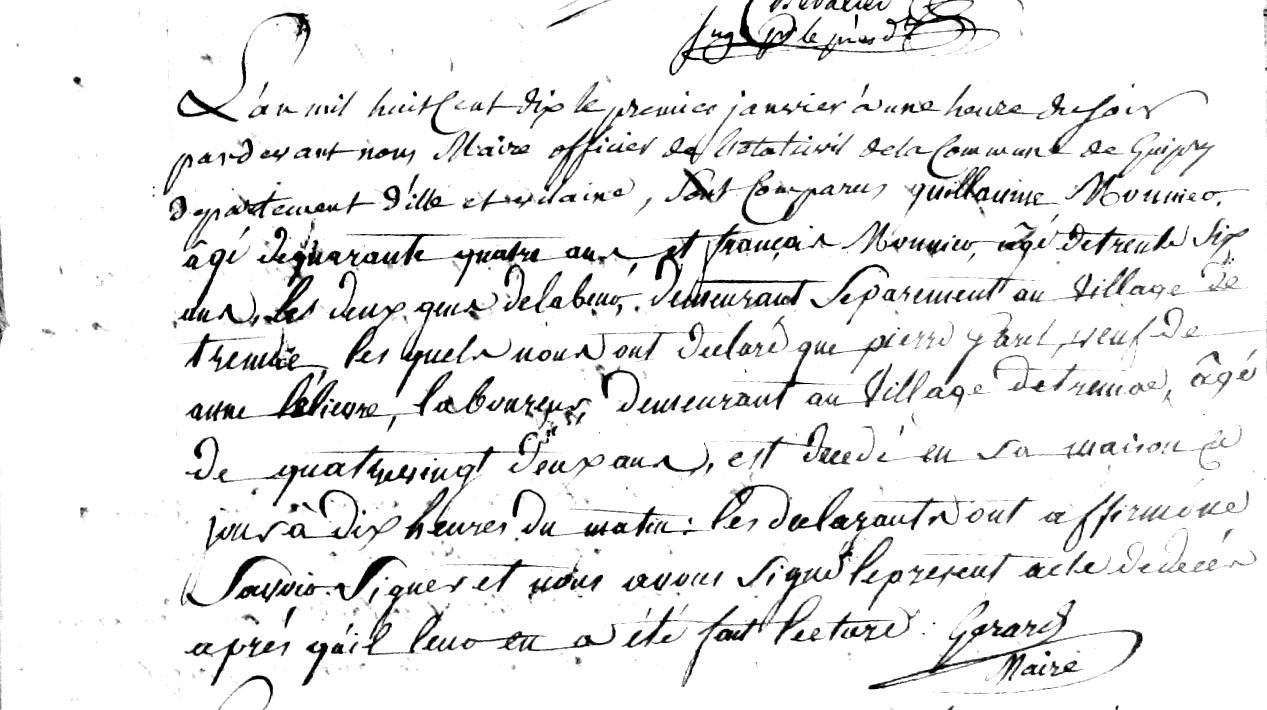 Chevalier
L'an mil huit Cent dix le premier janvier à une heure du soir
pardevant nous Maire officier de l'etat civil de la Commune de Guipry
departement d'ille et vilaine, sont Comparus guillaume Monnier,
âgé de quarante quatre ans, et françois Monnier, âgé de trente six
ans, les deux gens de labeur, demeurant separement au village de
tremae, les quels nous ont declaré que pierre veuf de
anne lelievre, laboureur, demeurant au village de tremae, âgé
de quatrevingt deux ans, est decedé en sa maison ce
jour à dix heures du matin : les declarants ont affirmé ne
savoir signer et nous avons signé le present acte de decès
après qu'il leur en a été fait lecture : Gerard
Maire